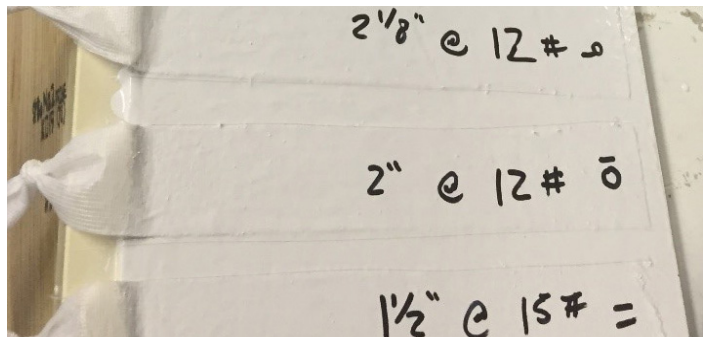 2 1/8" @ 12 # o
2" @ 12 # ō
1 1/2" @ 15 # =